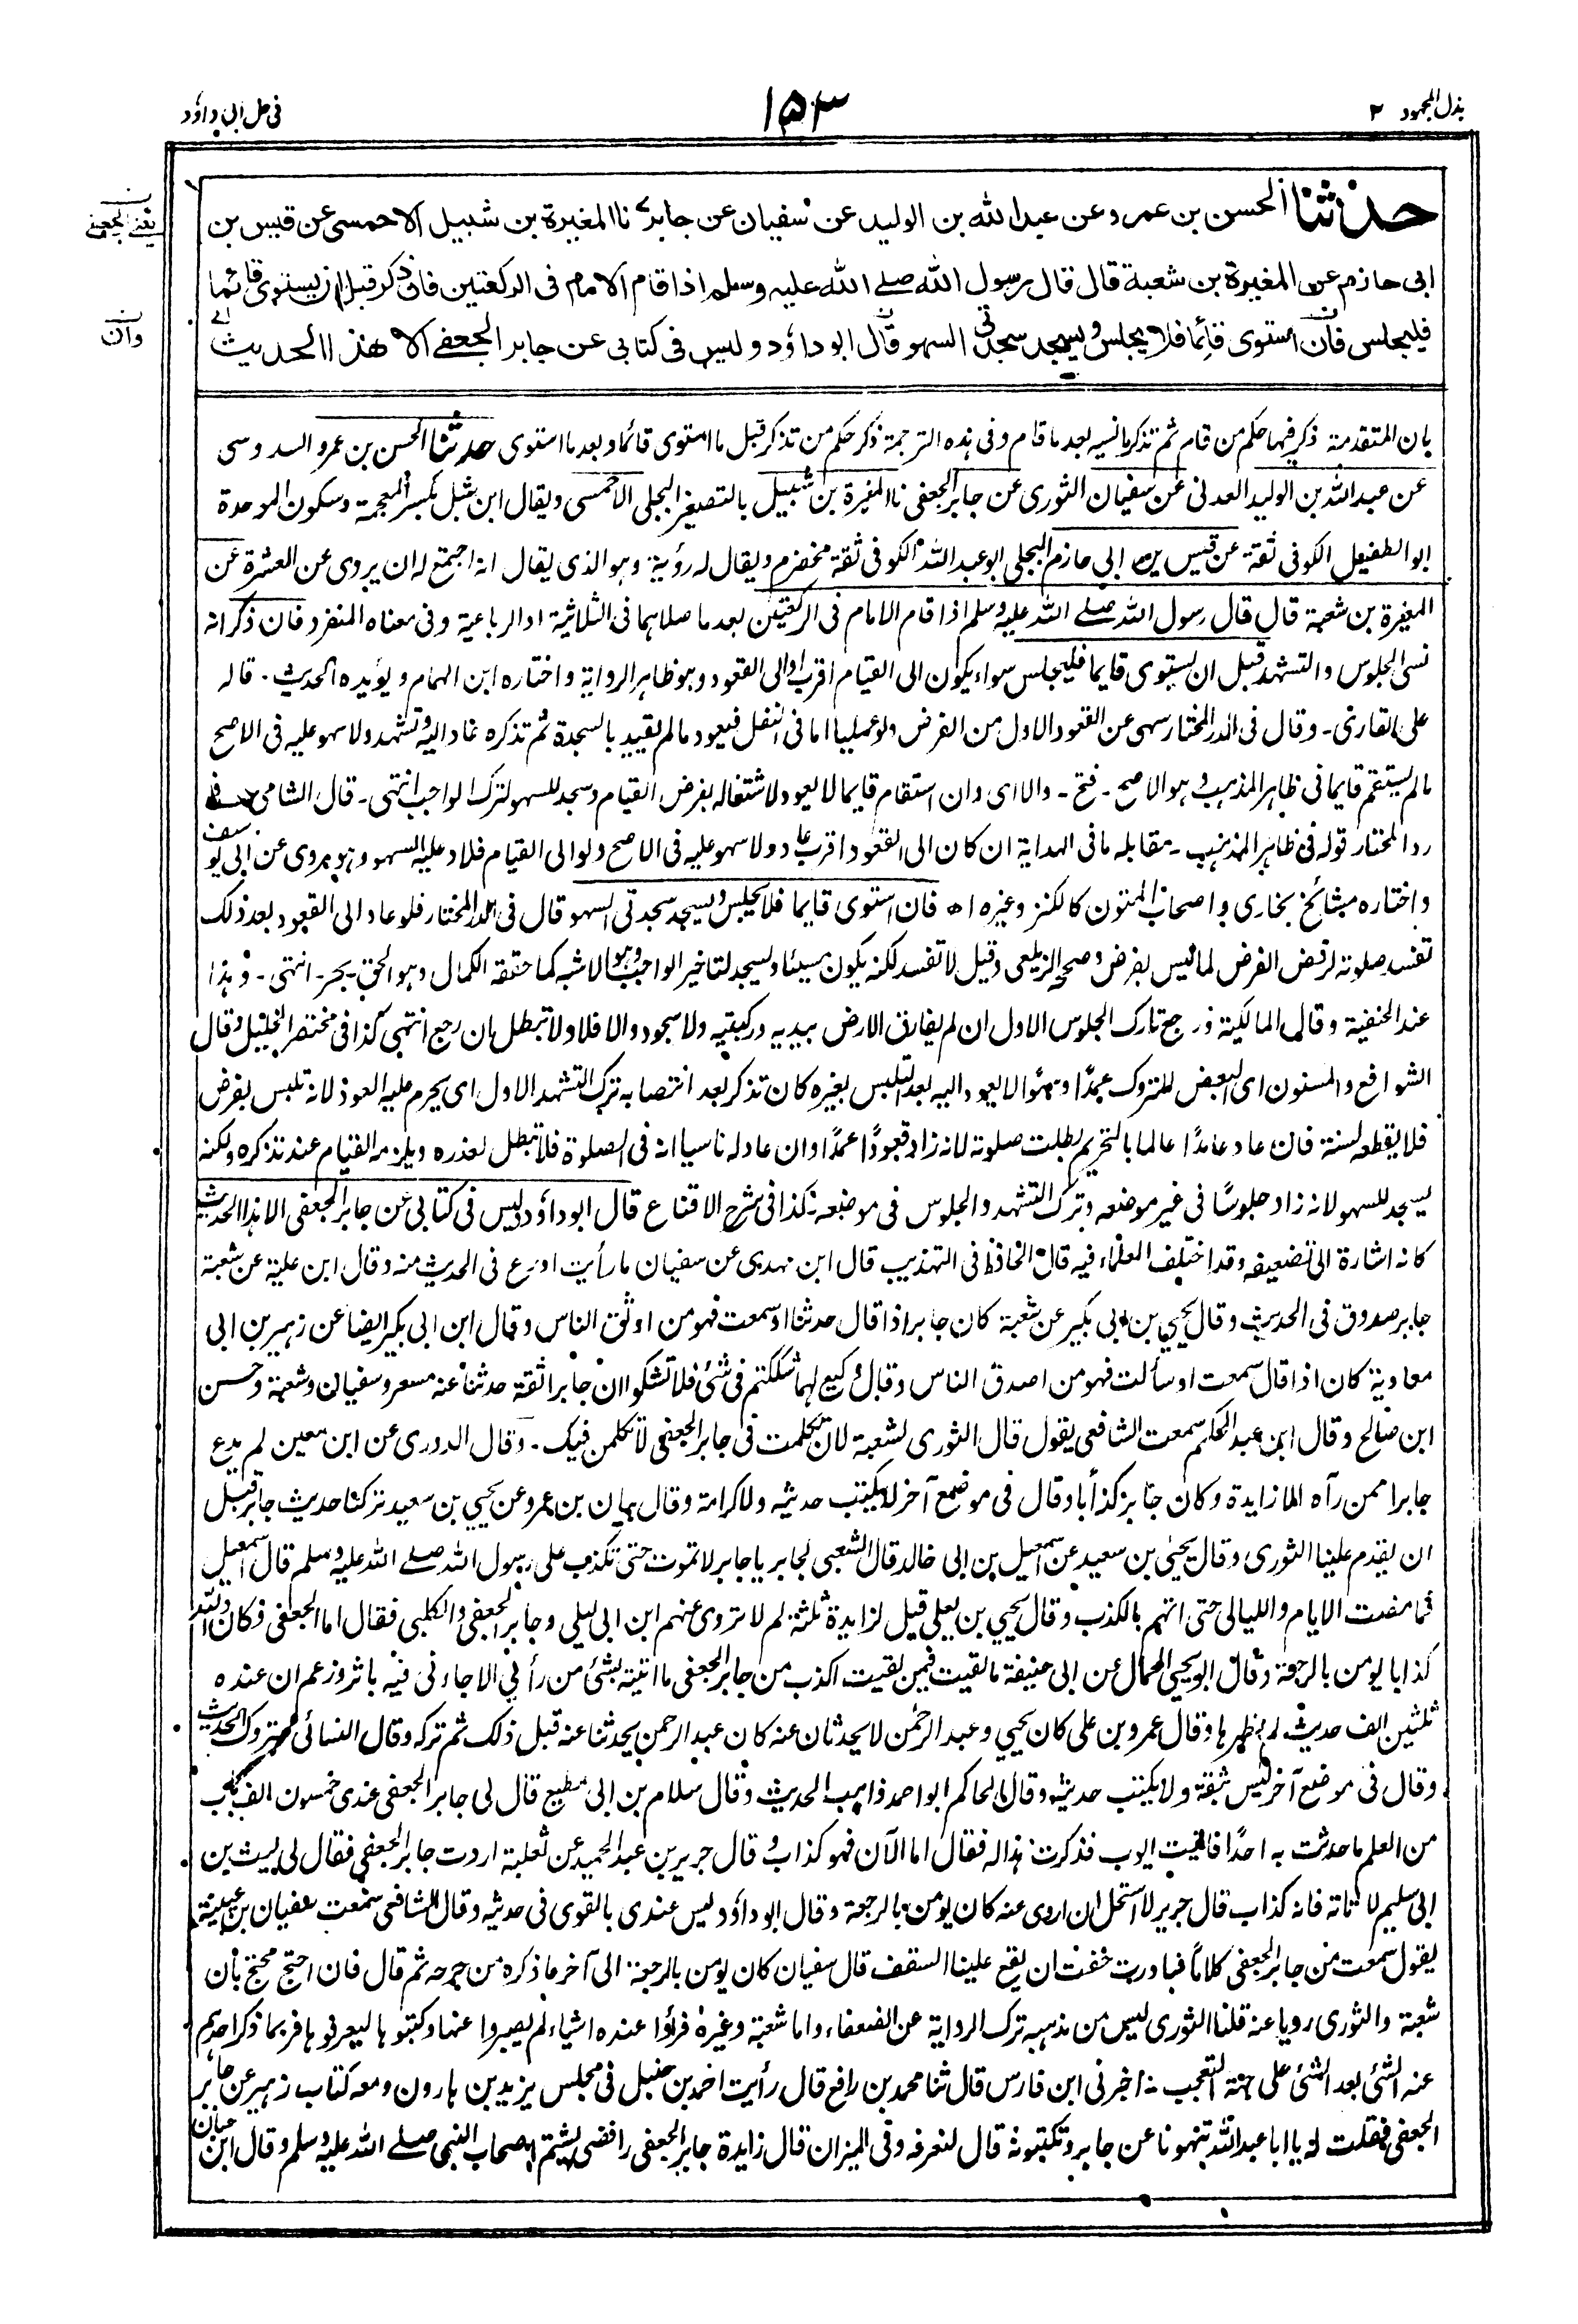 بذل المجهود ٢
١٥٣
فی حل ابی داؤد
حدثنا الحسن بن عمرو عن عبد الله بن الوليد عن سفيان عن جابر نا المغيرة بن شبيل الاحمسى عن قيس بن
يعنى الجعفى
ابى حازم عن المغيرة بن شعبة قال قال رسول الله صلے الله عليه وسلم اذا قام الامام فى الركعتين فان ذكر قبل ان يستوى قائما
فليجلس فان استوى قائما فلا يجلس ويسجد سجدتى السهو قال ابو داؤد وليس فى كتابى عن جابر الجعفے الا هذا الحديث
وان
بان المتقدمة ذكر فيها حكم من قام ثم تذكر ما نسيه بعد ما قام وفى هذه الترجمة ذكر حكم من تذكر قبل ما استوى قائما وبعد ما استوى حدثنا الحسن بن عمرو السدوسى
عن عبد الله بن الوليد العدنى عن سفيان الثورى عن جابر الجعفى نا المغيرة بن شبيل بالتصغير البجلى الاحمسى ويقال ابن شبل بكسر المعجمة وسكون الموحدة
ابو الطفيل الكوفى ثقة عن قيس بن ابى حازم البجلى ابو عبد الله الكوفى ثقة مخضرم ويقال له رؤية وهو الذى يقال انه اجتمع له ان يروى عن العشرة عن
المغيرة بن شعبة قال قال رسول الله صلے الله عليه وسلم اذا قام الامام فى الركعتين بعد ما صلاهما فى الثلاثية او الرباعية وفى معناه المنفرد فان ذكر انه
نسى الجلوس والتشهد قبل ان يستوى قايما فليجلس سواء يكون الى القيام اقرب او الى القعود وهو ظاهر الرواية واختاره ابن الهمام ويؤيده الحديث . قاله
على القارى ۔ وقال فى الدر المختار سهى عن القعود الاول من الفرض ولو عمليا اما فى النفل فيعود ما لم يقيد بالسجدة ثم تذكره عاد اليه وتشهد ولا سهو عليه فى الاصح
ما لم يستقم قايما فى ظاهر المذهب وهو الاصح ۔ فتح ۔ والا اى وان استقام قايما لا يعود لاشتغاله بفرض القيام وسجد للسهو لترك الواجب انتهى ۔ قال الشامى فى
رد المختار قوله فى ظاهر المذهب ۔ مقابله ما فى الهداية ان كان الى القعود اقرب عاد ولا سهو عليه فى الاصح ولو الى القيام فلا وعليه السهو وهو مروى عن ابى يوسف
واختاره مشائخ بخارى واصحاب المتون كالكنز وغيره اه فان استوى قايما فلا يجلس ويسجد سجدتى السهو قال فى الدر المختار فلو عاد الى القعود بعد ذلك
تفسد صلوته لرفض الفرض لما ليس بفرض وصححه الزيلعى وقيل لا تفسد لكنه يكون مسيئا ويسجد لتاخير الواجب وهو الاشبه كما حققه الكمال وهو الحق ۔ بحر ۔ انتهى ۔ وهذا
عند الحنفية وقالت المالكية ورجع تارك الجلوس الاول ان لم يفارق الارض بيديه وركبتيه ولا سجود والا فلا ولا تبطل بان رجع انتهى كذا فى مختصر الخليل وقال
الشوافع والمسنون اى البعض المتروك عمدًا او سهوًا لا يعود اليه بعد التلبس بغيره كان تذكر بعد انتصابه ترك التشهد الاول اى يحرم عليه العود لانه تلبس بفرض
فلا يقطعه لسنة فان عاد عامدًا عالما بالتحريم بطلت صلوته لانه زاد قعودًا عمدًا وان عاد له ناسيا انه فى الصلوة فلا تبطل لعذره ويلزمه القيام عند تذكره ولكنه
يسجد للسهو لانه زاد جلوسًا فى غير موضعه وترك التشهد والجلوس فى موضعه كذا فى شرح الاقناع قال ابو داؤد وليس فى كتابى عن جابر الجعفى الا هذا الحديث
كانه اشارة الى تضعيفه وقد اختلف العلماء فيه قال الحافظ فى التهذيب قال ابن مهدى عن سفيان ما رأيت اورع فى الحديث منه وقال ابن علية عن شعبة
جابر صدوق فى الحديث وقال يحيى بن ابى بكير عن شعبة كان جابر اذا قال حدثنا او سمعت فهو من اوثق الناس وقال ابن ابى بكير ايضا عن زهير بن ابى
معاوية كان اذا قال سمعت او سألت فهو من اصدق الناس وقال وكيع لهما شككتم فى شئ فلا تشكوا ان جابرا ثقة حدثنا عنه مسعر وسفيان وشعبة وحسن
ابن صالح وقال ابن عبد الحكم سمعت الشافعى يقول قال الثورى لشعبة لان تكلمت فى جابر الجعفى لا تكلمن فيك ۔ وقال الدورى عن ابن معين لم يدع
جابرا ممن رآه الا زايدة وكان جابر كذابا وقال فى موضع آخر لا يكتب حديثه ولا كرامة وقال بيان بن عمرو عن يحيى بن سعيد تركنا حديث جابر قبل
ان يقدم علينا الثورى وقال يحيى بن سعيد عن اسمعيل بن ابى خالد قال الشعبى لجابر يا جابر لا تموت حتى تكذب على رسول الله صلے الله عليه وسلم قال اسمعيل
فما مضت الايام والليالى حتى اتهم بالكذب وقال يحيى بن يعلى قيل لزايدة ثلثة لم لا تروى عنهم ابن ابى ليلى وجابر الجعفى والكلبى فقال اما الجعفى فكان والله
كذابا يومن بالرجعة وقال ابو يحيى الحمال عن ابى حنيفة ما لقيت فيمن لقيت اكذب من جابر الجعفى ما اتيته بشئ من رأيى الا جاءنى فيه باثر وزعم ان عنده
ثلثين الف حديث لم يظهرها وقال عمرو بن على كان يحيى وعبد الرحمن لا يحدثان عنه كان عبد الرحمن يحدثنا عنه قبل ذلك ثم تركه وقال النسائى متروك الحديث
وقال فى موضع آخر ليس بثقة ولا يكتب حديثه وقال الحاكم ابو احمد ذاهب الحديث وقال سلام بن ابى مطيع قال لى جابر الجعفى عندى خمسون الف باب
من العلم ما حدثت به احدًا فاتيت ايوب فذكرت هذا له فقال اما الآن فهو كذاب وقال جرير بن عبد الحميد عن ثعلبة اردت جابر الجعفى فقال لى ليث بن
ابى سليم لا تاته فانه كذاب قال جرير لا استحل ان اروى عنه كان يومن بالرجعة وقال ابو داؤد ليس عندى بالقوى فى حديثه وقال الشافعى سمعت سفيان بن عيينة
يقول سمعت من جابر الجعفى كلامًا فبادرت خفت ان يقع علينا السقف قال سفيان كان يومن بالرجعة الى آخر ما ذكره من جرحه ثم قال فان احتج محتج بأن
شعبة والثورى رويا عنه قلنا الثورى ليس من مذهبه ترك الرواية عن الضعفاء واما شعبة وغيره فرأوا عنده اشياء لم يصبروا عنها وكتبوها ليعرفوها فربما ذكر احدهم
عنه الشئ بعد الشئ على جهة التعجب ۔ اخبرنى ابن فارس قال ثنا محمد بن رافع قال رأيت احمد بن حنبل فى مجلس يزيد بن هارون ومعه كتاب زهير عن جابر
الجعفى فقلت له يا ابا عبد الله تنهونا عن جابر وتكتبونه قال لنعرفه وفى الميزان قال زايدة جابر الجعفى رافضى يشتم اصحاب النبى صلے الله عليه وسلم وقال ابن حبان